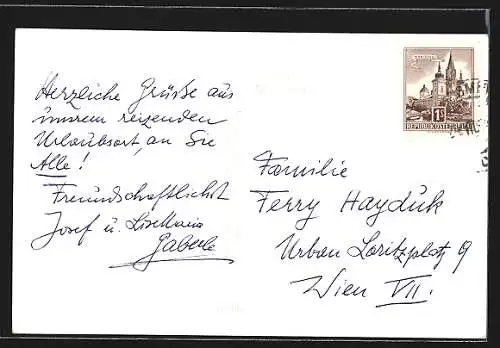 Herzliche Grüße aus
unsrem reizenden
Urlaubsort, an Sie
Alle!
Freundschaftlichst
Josef u. Liselmaria
Gaberle
Familie
Ferry Hayduk
Urban Loritzplatz 9
Wien VII.
1S
REPUBLIK ÖSTERREICH